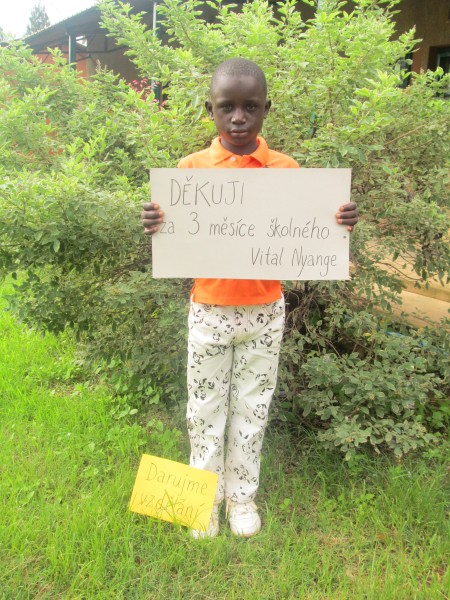 DĚKUJI
za 3 měsíce školného
Vital Nyange
Darujme
vzdělání